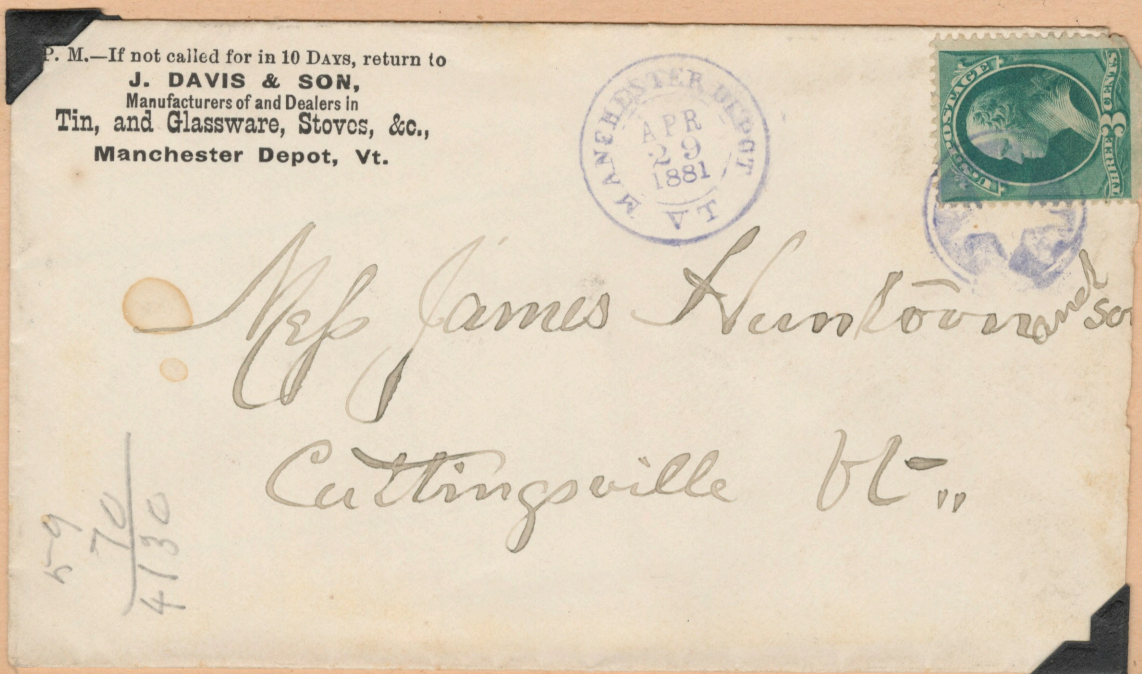 P. M.—If not called for in 10 DAYS, return to
J. DAVIS & SON,
Manufacturers of and Dealers in
Tin, and Glassware, Stoves, &c.,
Manchester Depot, Vt.
MANCHESTER DEPOT
APR
29
1881
VT
POSTAGE
THREE 3 CENTS
Mess James Huntoon and Son
Cuttingsville Vt "
59
70
4130